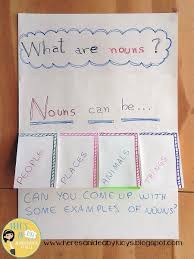 What are nouns?
Nouns can be...
PEOPLE
PLACES
ANIMALS
THINGS
CAN YOU COME UP WITH
SOME EXAMPLES OF NOUNS?
www.heresanideabylucys.blogspot.com